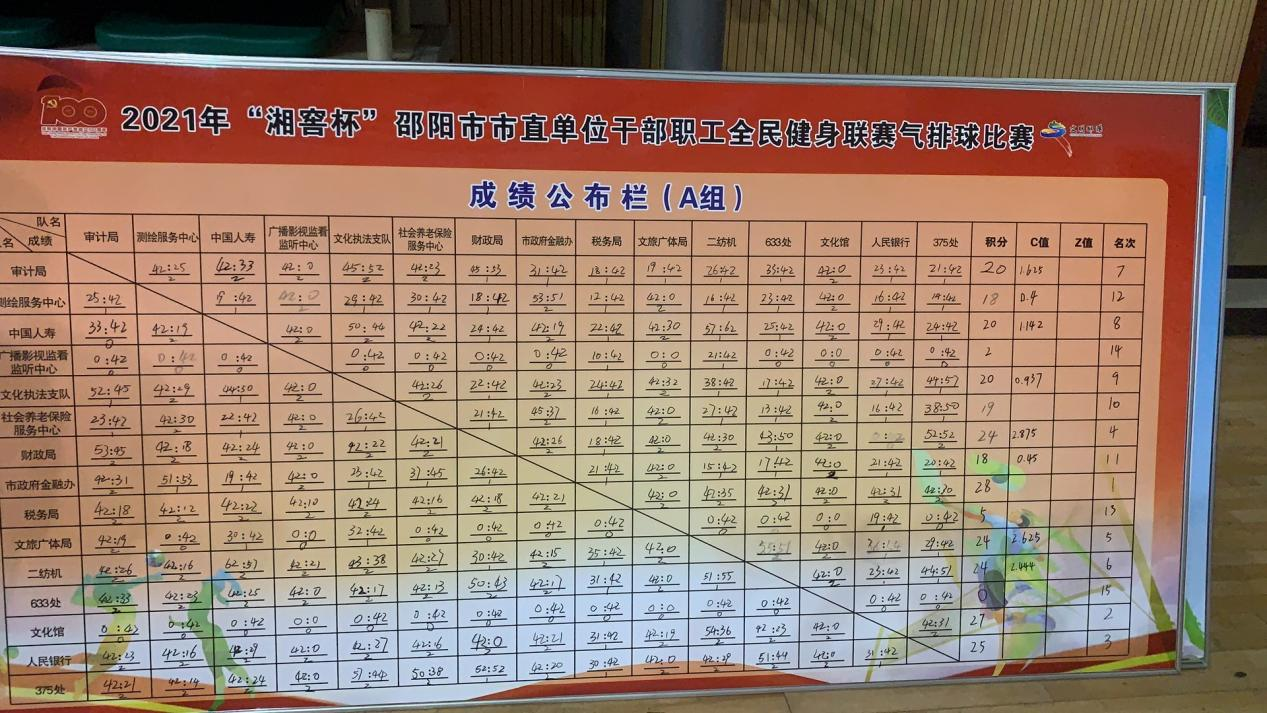 100
2021年“湘窖杯”邵阳市市直单位干部职工全民健身联赛气排球比赛
成绩公布栏（A组）
队名 审计局 测绘服务中心 中国人寿 广播影视监看监听中心 文化执法支队 社会养老保险服务中心 财政局 市政府金融办 税务局 文旅广体局 二纺机 633处 文化馆 人民银行 375处 积分 C值 Z值 名次
成绩
审计局 42:25 2 42:33 2 42:0 2 45:52 2 42:23 2 45:53 1 31:42 1 18:42 1 19:42 1 26:42 1 33:42 1 42:0 2 23:42 1 21:42 1 20 1.625 7
测绘服务中心 25:42 1 9:42 1 42:0 2 29:42 1 30:42 1 18:42 1 53:51 2 12:42 1 42:0 2 16:42 1 23:42 1 42:0 2 16:42 1 14:42 1 18 0.4 12
中国人寿 33:42 0 42:19 2 42:0 2 50:44 2 42:22 2 24:42 1 42:19 2 22:42 1 42:30 2 57:62 1 25:42 1 42:0 2 29:42 1 24:42 1 20 1.142 8
广播影视监看监听中心 0:42 0 0:42 0 0:42 0 0:42 0 0:42 0 0:42 0 0:42 0 10:42 1 0:0 0 21:42 1 0:42 0 0:0 0 0:42 0 0:42 0 2 14
文化执法支队 52:45 1 42:29 2 44:50 1 42:0 2 42:26 2 22:42 1 42:23 2 24:42 1 42:32 2 38:42 1 17:42 1 42:0 2 27:42 1 44:57 1 20 0.937 9
社会养老保险服务中心 23:42 1 42:30 2 22:42 1 42:0 2 26:42 1 21:42 1 45:37 2 16:42 1 42:0 2 27:42 1 13:42 1 42:0 2 16:42 1 38:50 1 19 10
财政局 53:45 2 42:18 2 42:24 2 42:0 2 42:22 2 42:21 2 42:26 2 18:42 1 42:0 2 42:30 2 43:50 1 42:0 2 52:52 2 24 2.875 4
市政府金融办 42:31 2 51:53 1 19:42 1 42:0 2 23:42 1 37:45 1 26:42 1 21:42 1 42:0 2 15:42 1 17:42 1 42:0 2 21:42 1 20:42 1 18 0.45 11
税务局 42:18 2 42:12 2 42:22 2 42:10 2 42:24 2 42:16 2 42:18 2 42:21 2 42:0 2 42:35 2 42:31 2 42:0 2 42:31 2 42:30 2 28 1
文旅广体局 42:19 2 0:42 0 30:42 1 0:0 0 32:42 1 0:42 0 0:42 0 0:42 0 0:42 0 0:42 0 0:42 0 0:0 0 19:42 1 0:42 0 5 13
二纺机 42:26 2 42:16 2 62:57 2 42:21 2 43:38 2 42:27 2 30:42 1 42:15 2 35:42 1 42:0 2 55:51 2 42:0 2 29:42 1 24 2.625 5
633处 42:33 2 42:23 2 42:25 2 42:0 2 42:17 2 42:13 2 50:43 2 42:17 2 31:42 1 42:0 2 51:55 1 42:0 2 23:42 1 44:51 1 24 2.444 6
文化馆 0:42 0 0:42 0 0:42 0 0:0 0 0:42 0 0:42 0 0:42 0 0:42 0 0:42 0 0:0 0 0:42 0 0:42 0 0:42 0 0:42 0 0 15
人民银行 42:23 2 42:16 2 42:29 2 42:0 2 42:27 2 42:16 2 42:0 2 42:21 2 31:42 1 42:19 2 54:36 2 42:23 2 42:0 2 42:31 2 27 2
375处 42:21 2 42:14 2 42:24 2 42:0 2 57:44 2 50:38 2 52:52 1 42:20 2 30:42 1 42:0 2 42:29 2 51:44 2 42:0 2 31:42 1 25 3